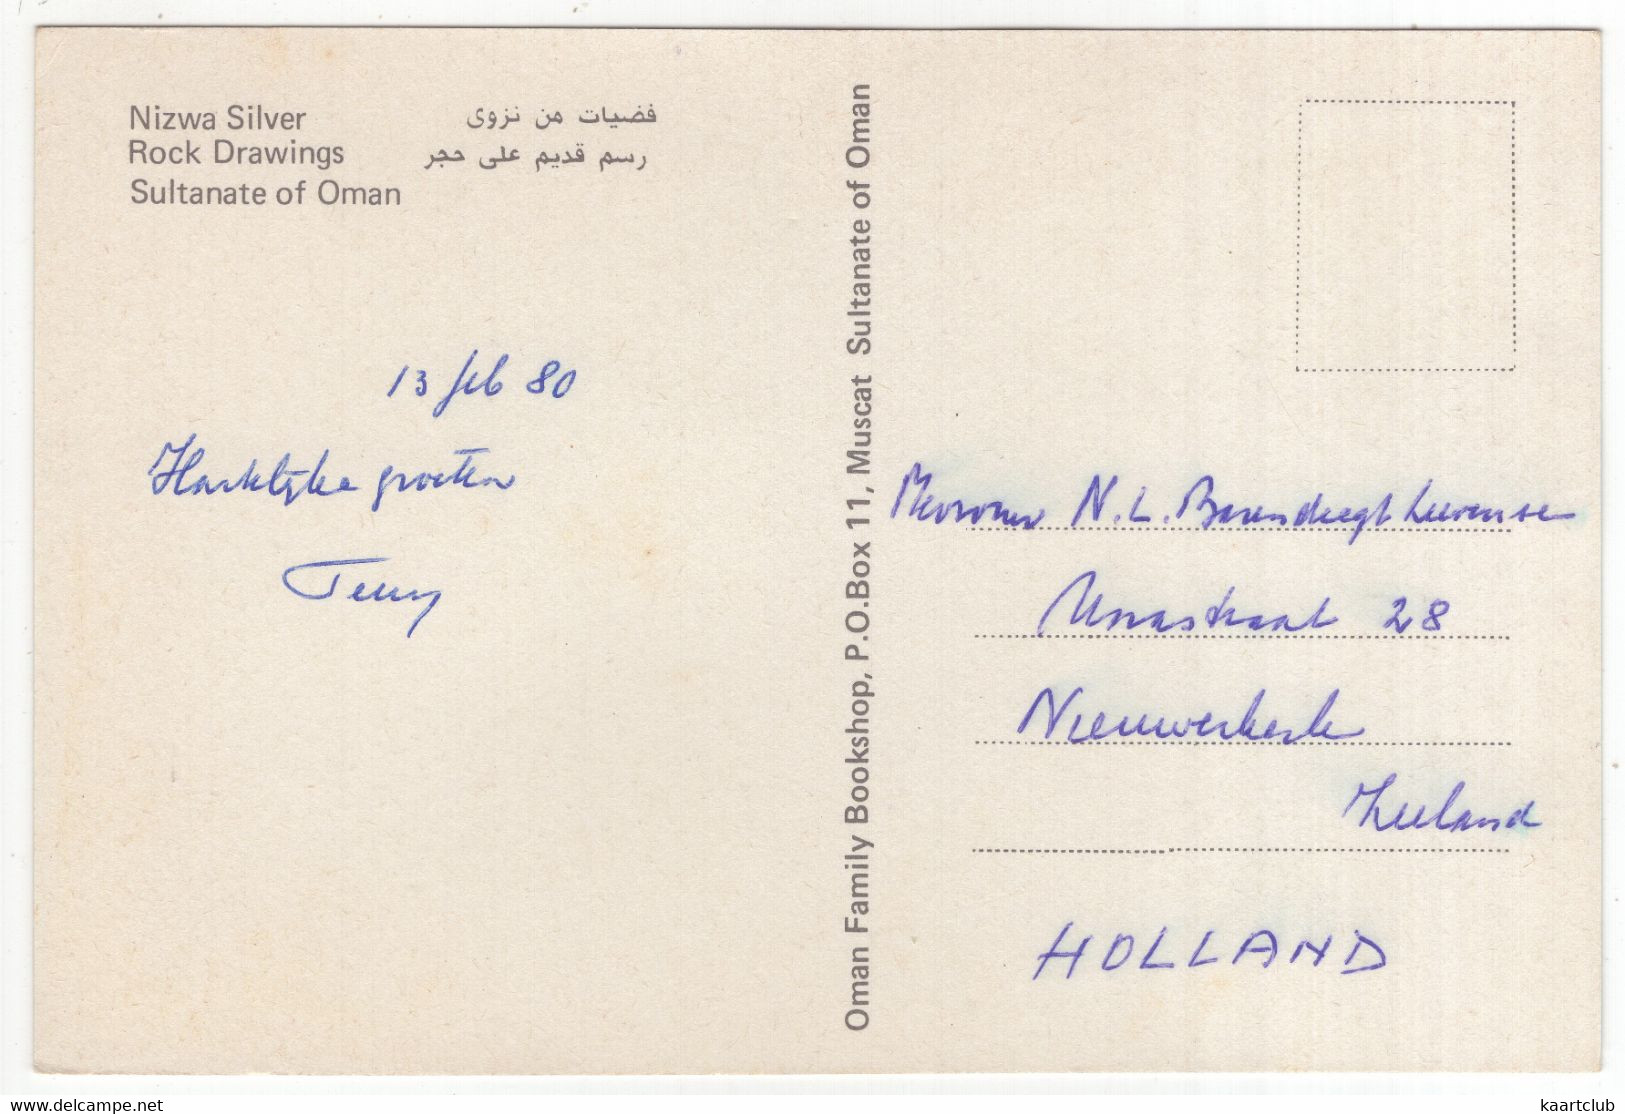 Nizwa Silver فضيات من نزوى
Rock Drawings رسم قديم على حجر
Sultanate of Oman
13 feb 80
Hartelijke groeten
Oman Family Bookshop, P.O.Box 11, Muscat Sultanate of Oman
Mevrouw N.L. Barendregt Leevense
28
Nieuwerkerk
Zeeland
HOLLAND
www.delcampe.net
kaartclub